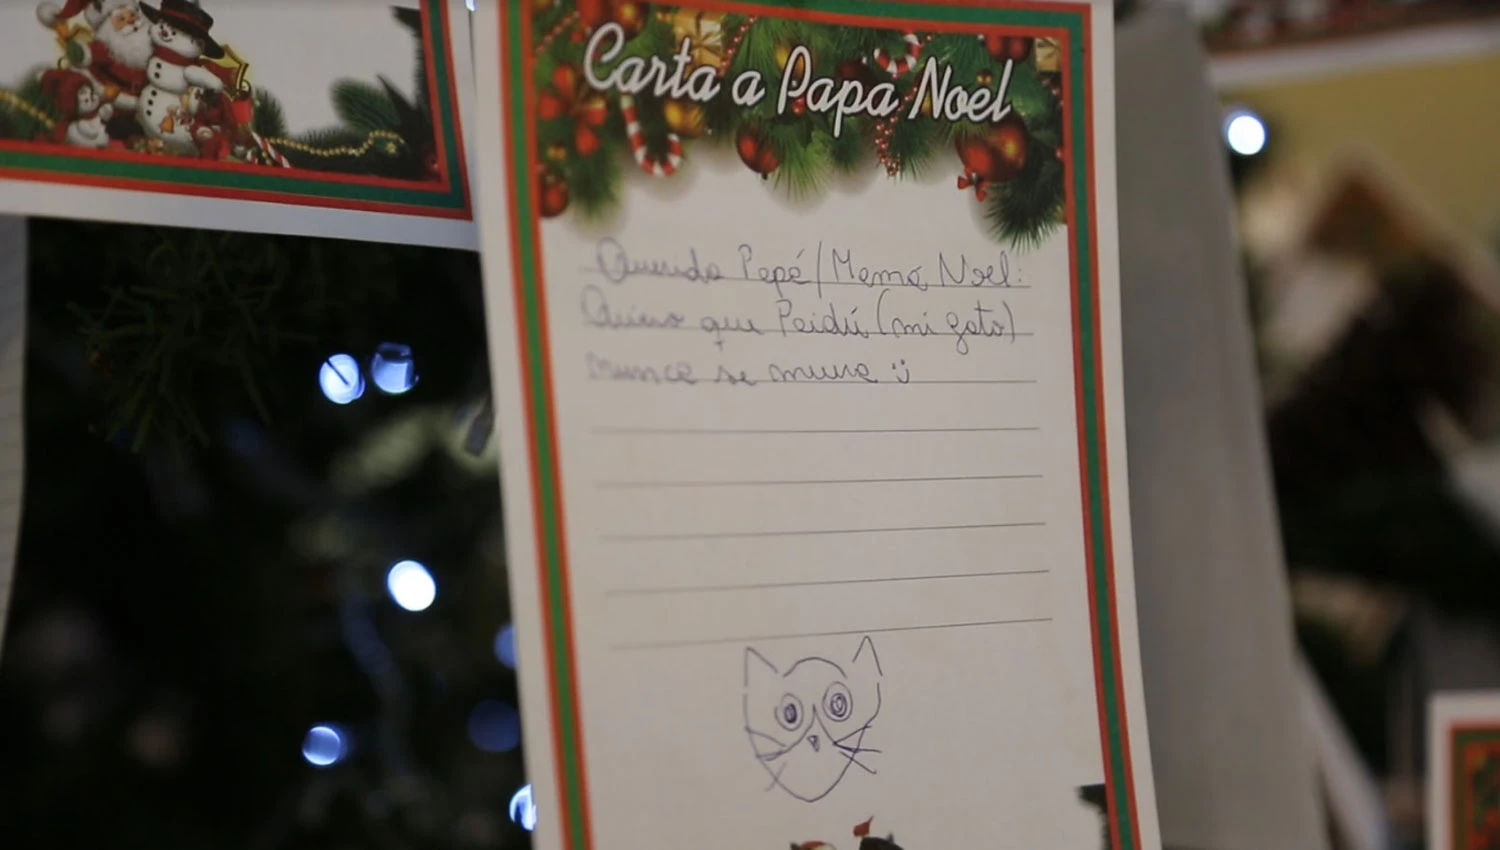 Carta a Papa Noel
Querido Papá/Mamá Noel:
Quiero que Paidú (mi gato)
nunca se muera :)